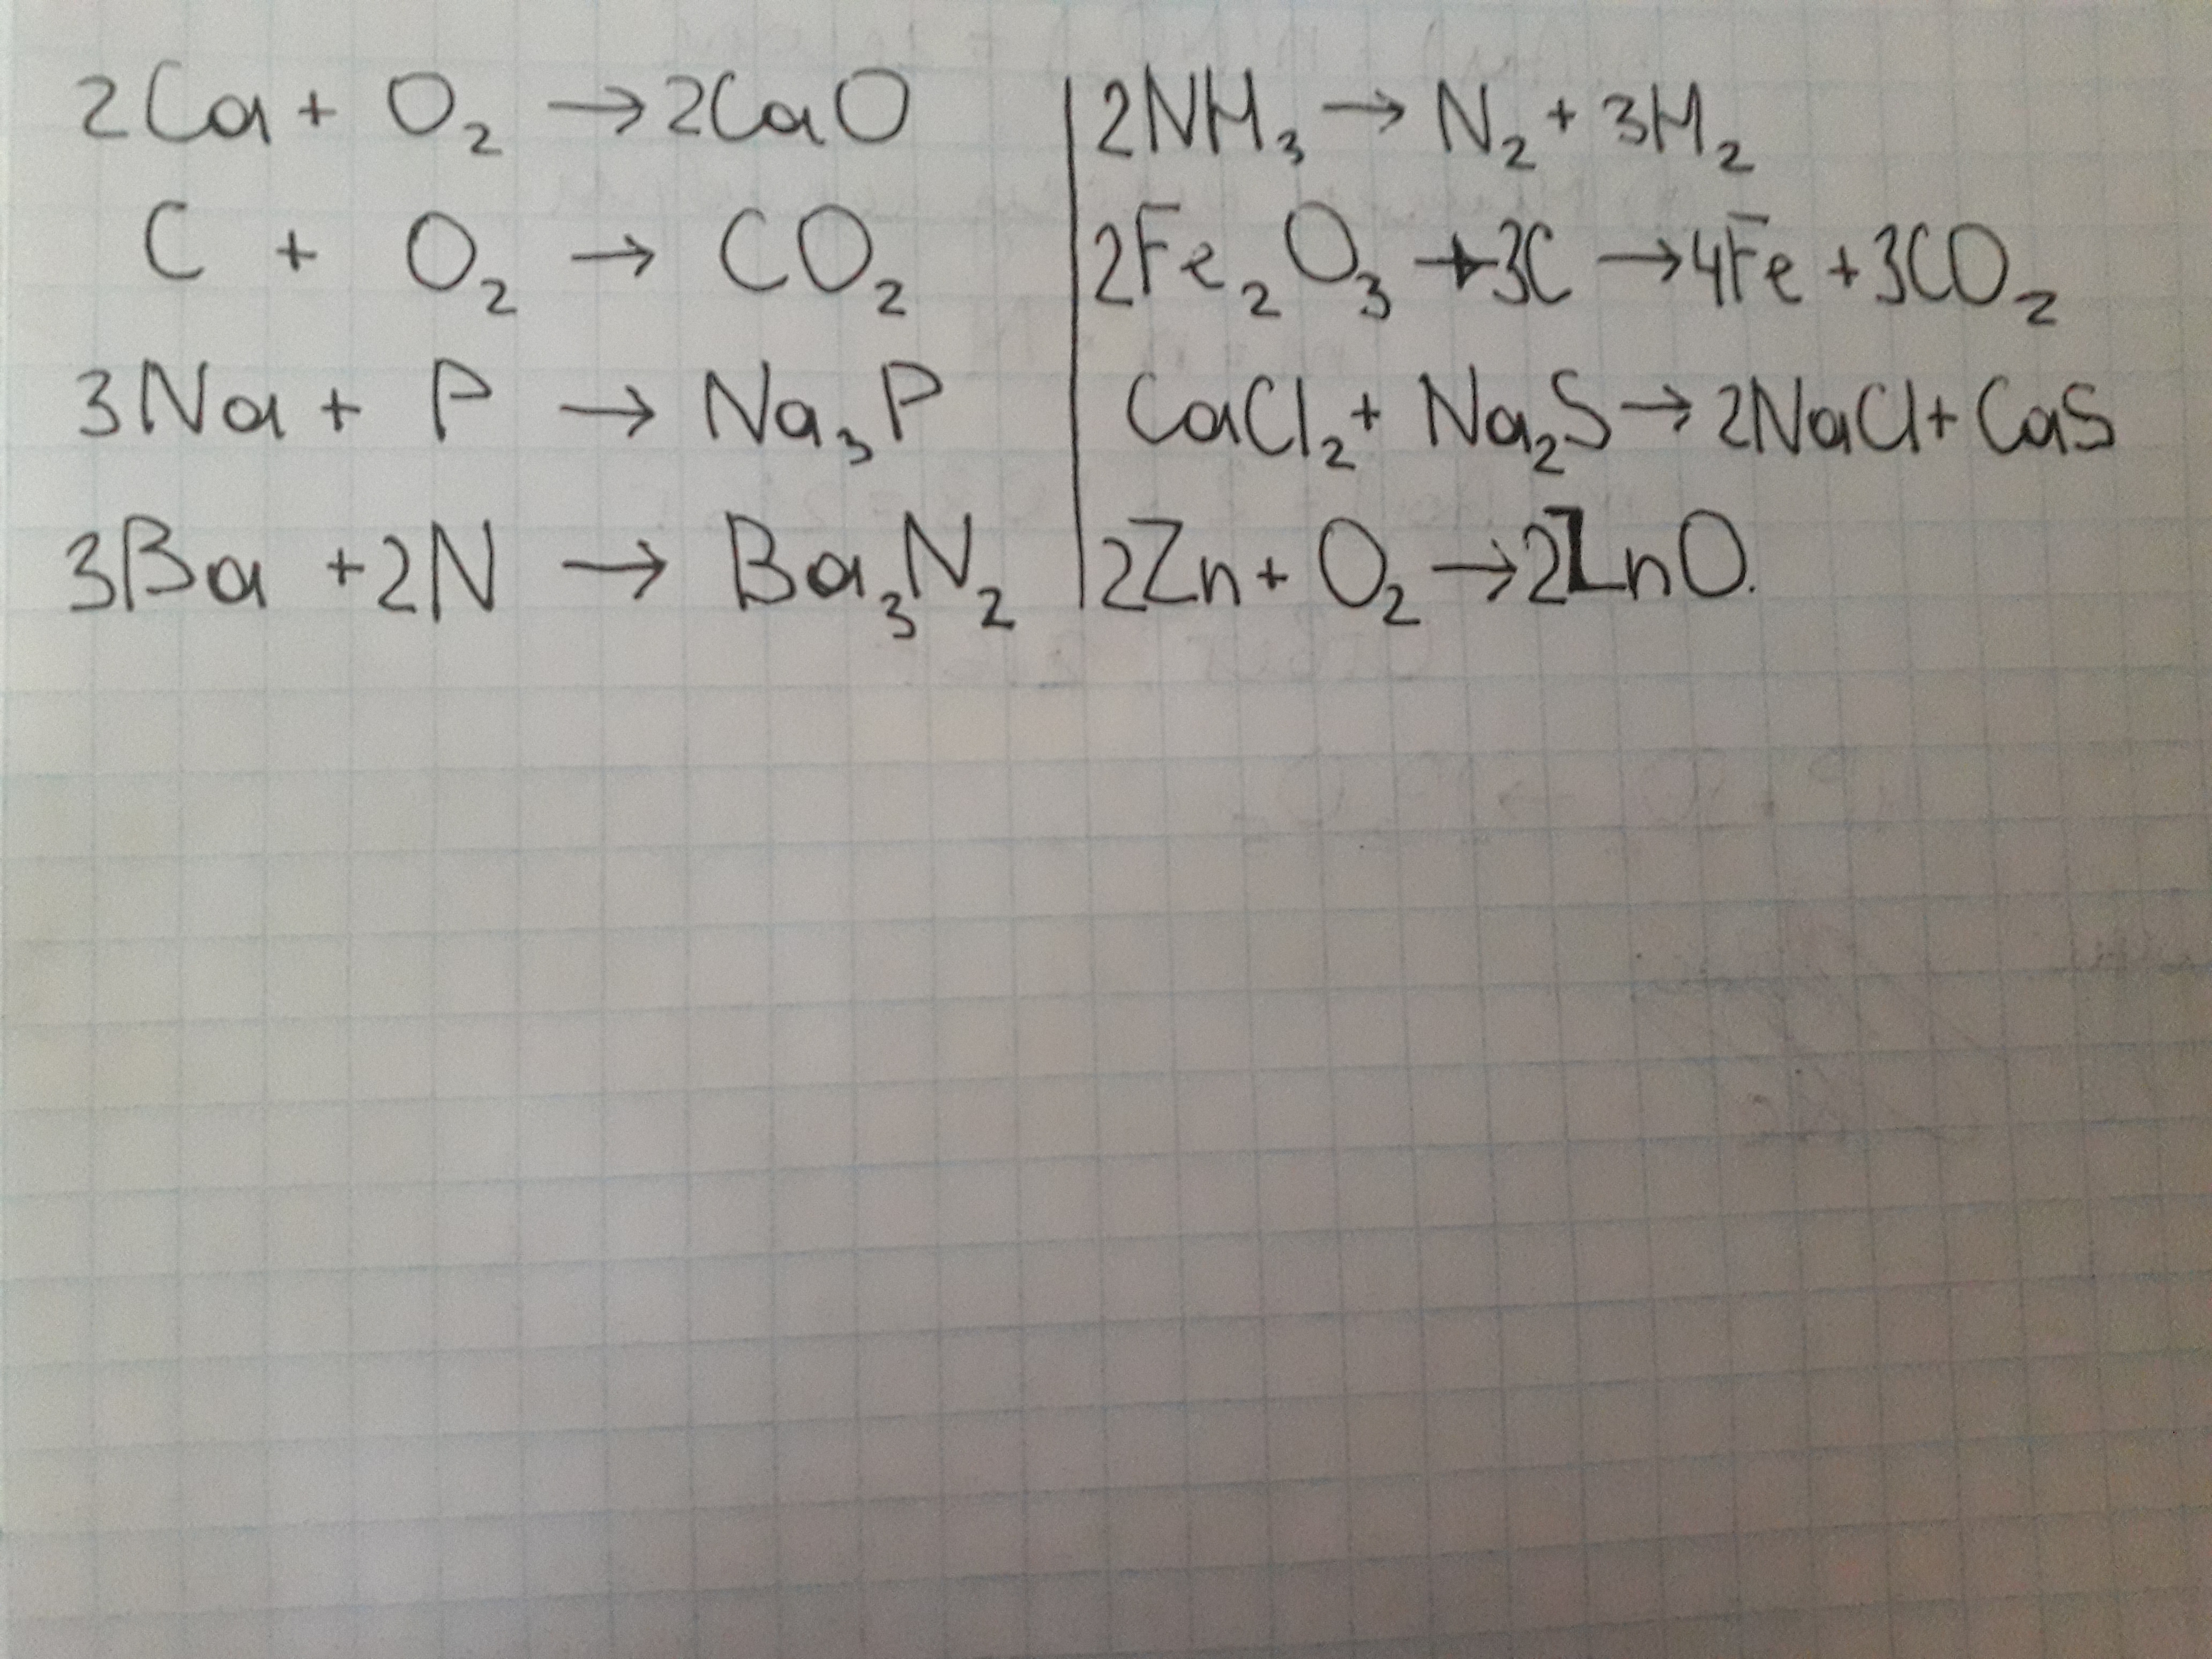 2Ca + O₂ → 2CaO
C + O₂ → CO₂
3Na + P → Na₃P
3Ba + 2N → Ba₃N₂
2NH₃ → N₂ + 3H₂
2Fe₂O₃ + 3C → 4Fe + 3CO₂
CaCl₂ + Na₂S → 2NaCl + CaS
2Zn + O₂ → 2ZnO.